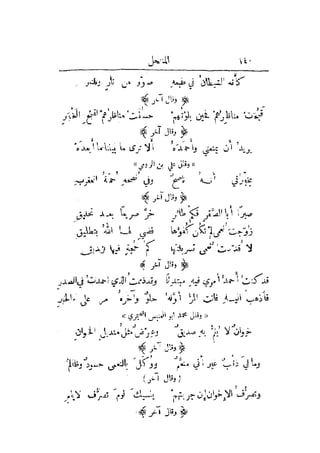 ١٤٠ المنتحل
كأنه الشيطان في مقمعه صور من نار
﴿ وقال آخر ﴾
قبحت مناظرهم فحين بلوتهم حسنت مناظرهم لقبح المخبر
﴿ وقال آخر ﴾
يريد أن يمتعني وأحمده ألا ترى ما بيننا ما أبعده
« وقال علي بن الرومي »
يخبرني أنه ناصح وفي نصحه حمة العقرب
﴿ وقال آخر ﴾
صبراً أبا الصقر فكم طائر خر صريعاً بعد تحليق
زوجت نعمى لم تكن كفؤها قضى لها الله بتطليق
لا قدست نعمى تسربلتها كم حجة فيها لزنديق
﴿ وقال آخر ﴾
قد كنت أحمد أمري فيه مبتدئاً وقد ذممت الذي أحمدت في الصدر
فاذهب إليه فأنت المرء أوله حلو وآخره مر على
« وقال محمد أبو »
خوان لا يلم به صديق وعرض مثل منديل الخوان
﴿ وقال آخر ﴾
ومالي ذنب غير أني منعم ووكل بالنعمى حسود
( وقال آخر )
وتصرف الإخوان إن جربتهم ينسيك لوم تصرف الأيام
﴿ وقال آخر ﴾